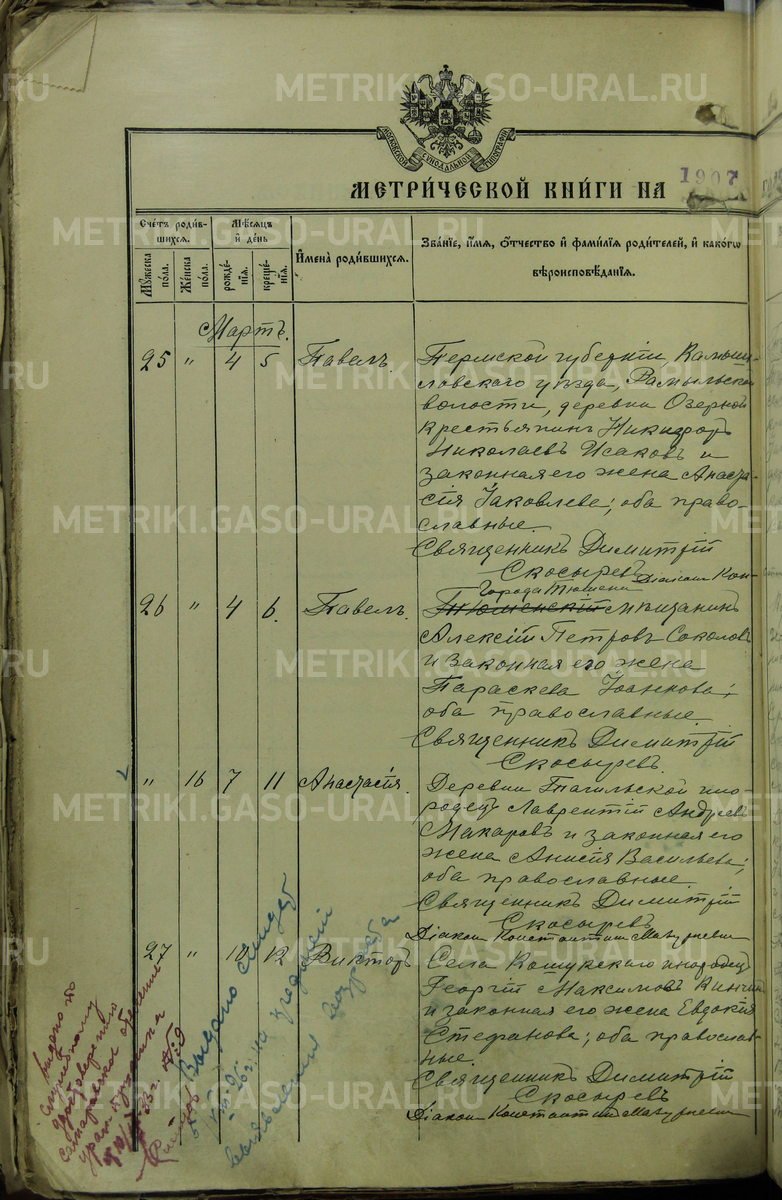 МЕТРИ́ЧЕСКОЙ КНИ́ГИ НА 1907
Сче́тъ роди́вшихся.
Мꙋ́жеска по́ла.
Же́нска по́ла.
Мѣ́сяцъ и҆ де́нь
рожде́нїя.
креще́нїя.
И҆мена̀ роди́вшихся.
Зва́нїе, и҆́мя, ѻ҆́тчество и҆ фами́лїя роди́телей, и҆ како́гѡ вѣроисповѣ́данїя.
Мартъ.
25 " 4 5 Павелъ.
Пермской губерніи, Камыш-
ловскаго уѣзда,
волости, деревни Озерной
крестьянинъ Никифоръ
Николаевъ Исаковъ и
законная его жена Анаста-
сія Іаковлева; оба право-
славные.
Священникъ Димитрій
Скосыревъ Діаконъ Кон-
26 " 4 6. Павелъ.
Города Тюмени
Тюменскій мѣщанинъ
Алексій Петровъ Соколовъ
и законная его жена
Параскева Іоаннова;
оба православные.
Священникъ Димитрій
Скосыревъ.
" 16 7 11 Анастасія.
Деревни Тагильской ино-
родецъ Лаврентій Андреевъ
Макаровъ и законная его
жена Анисія Васильева;
оба православные.
Священникъ Димитрій
Скосыревъ
Діаконъ Константинъ
27 " 12 Викторъ
Села Кошукскаго инородецъ
Георгій Максимовъ
и законная его жена Евдокія
Стефанова; оба православ-
ные.
Священникъ Димитрій
Скосыревъ
Діаконъ Константинъ
Выдано
METRIKI.GASO-URAL.RU